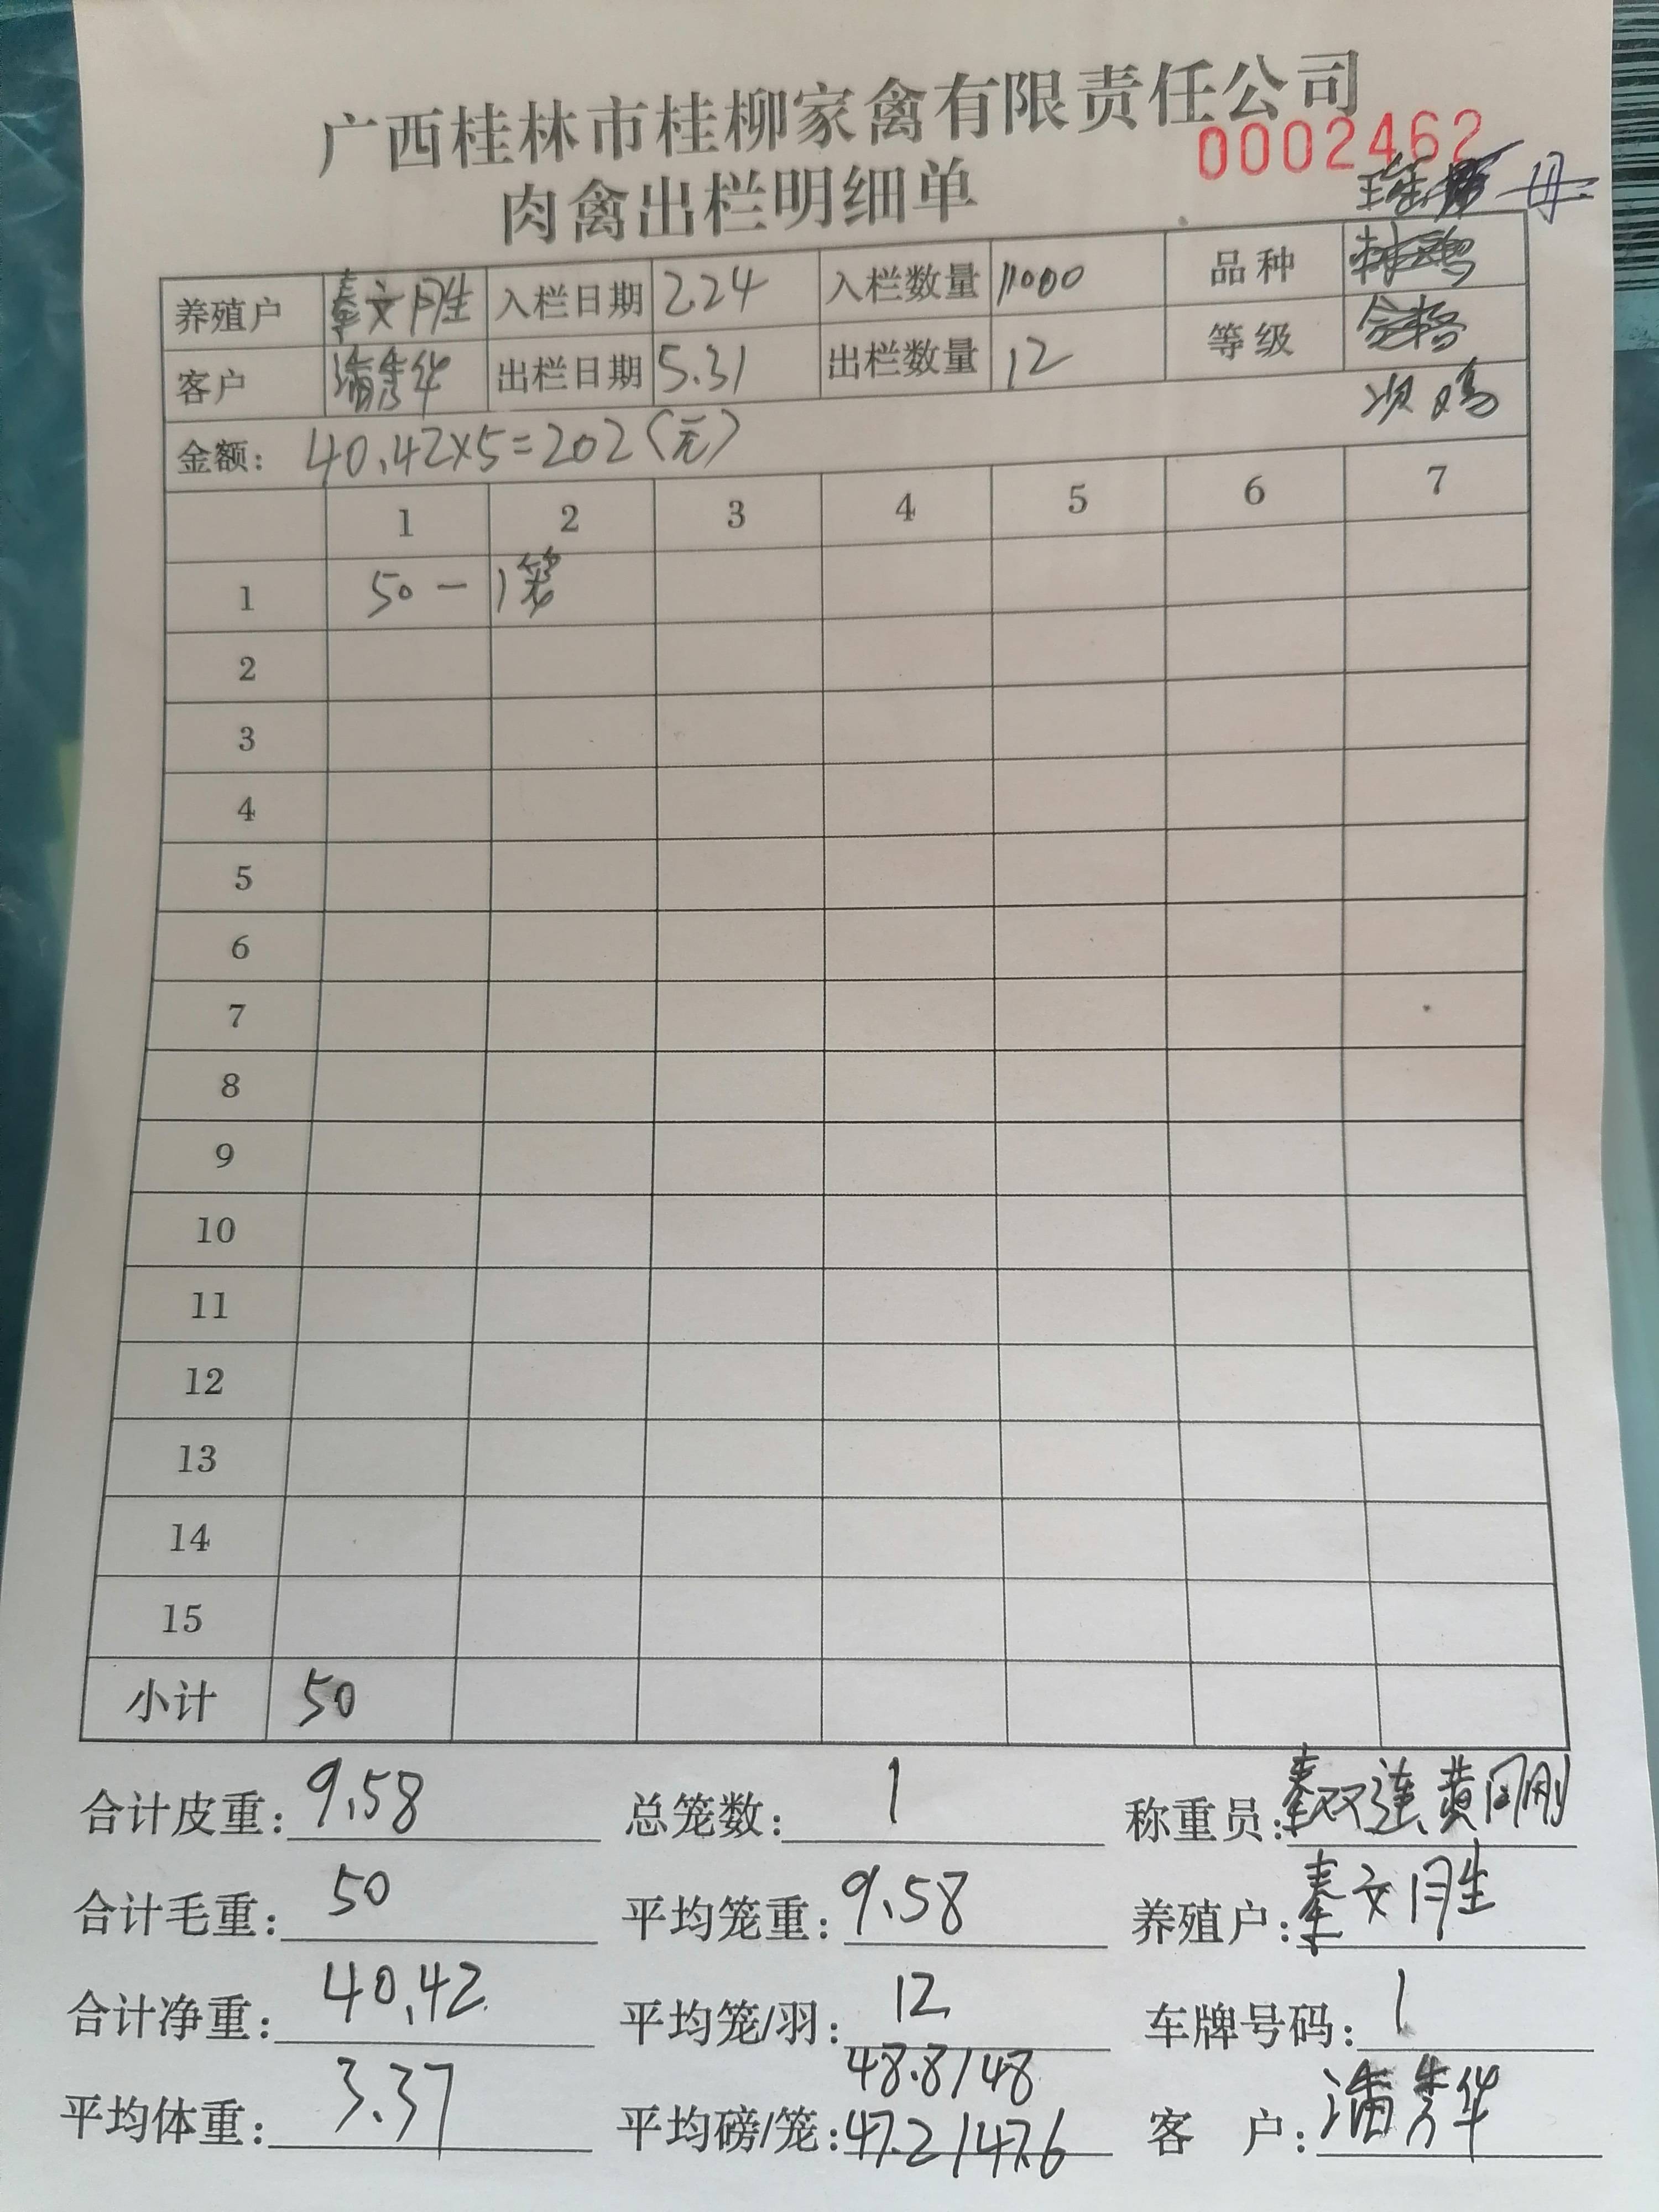 广西桂林市桂柳家禽有限责任公司
0002462
肉禽出栏明细单
养殖户 秦文胜 入栏日期 2.24 入栏数量 11000 品种
客户 潘秀华 出栏日期 5.31 出栏数量 12 等级
次鸡
金额: 40.42×5=202(元)
1 2 3 4 5 6 7
1 50 — 1笼
2
3
4
5
6
7
8
9
10
11
12
13
14
15
小计 50
合计皮重: 9.58 总笼数: 1 称重员: 秦双连 黄国刚
合计毛重: 50 平均笼重: 9.58 养殖户: 秦文胜
合计净重: 40.42 平均笼/羽: 12 车牌号码: 1
48.8/48
平均体重: 3.37 平均磅/笼: 47.2/47.6 客 户: 潘秀华